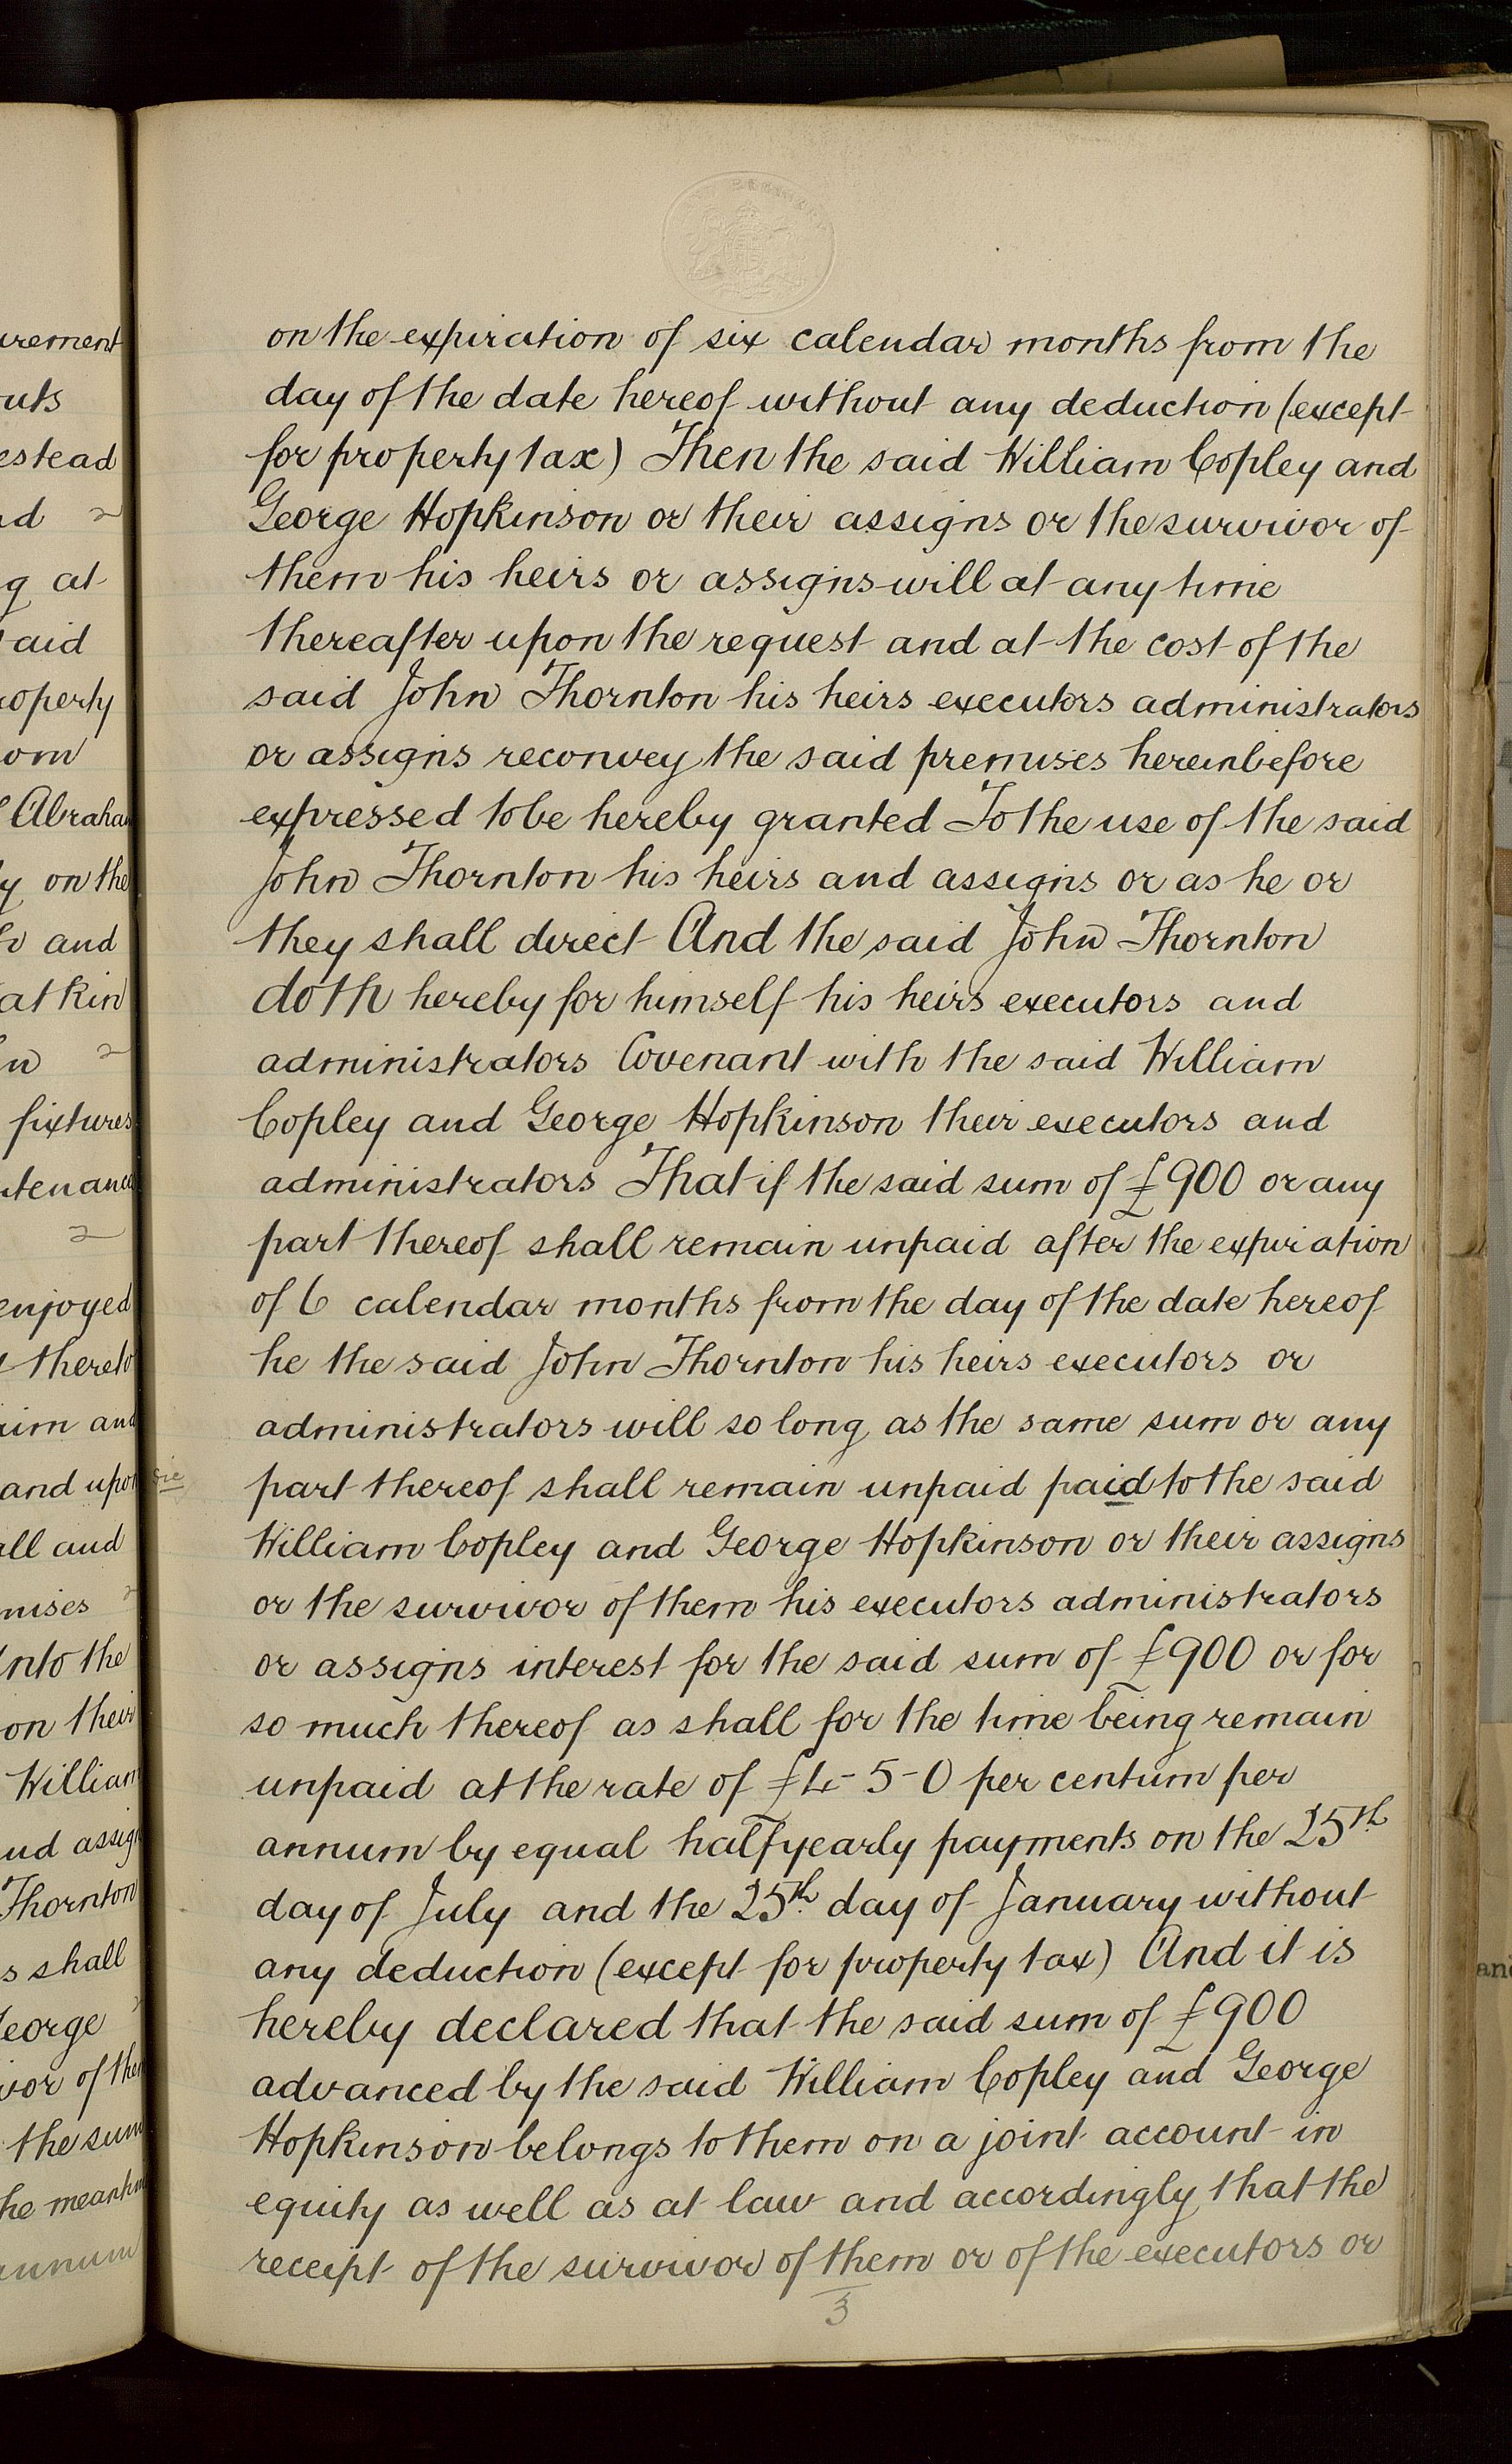 on the expiration of six calendar months from the
day of the date hereof without any deduction (except
for property tax) Then the said William Copley and
George Hopkinson or their assigns or the survivor of
them his heirs or assigns will at any time
thereafter upon the request and at the cost of the
said John Thornton his heirs executors administrators
or assigns reconvey the said premises hereinbefore
expressed to be hereby granted To the use of the said
John Thornton his heirs and assigns or as he or
they shall direct And the said John Thornton
doth hereby for himself his heirs executors and
administrators Covenant with the said William
Copley and George Hopkinson their executors and
administrators That if the said sum of £900 or any
part thereof shall remain unpaid after the expiration
of 6 calendar months from the day of the date hereof
he the said John Thornton his heirs executors or
administrators will so long as the same sum or any
sic part thereof shall remain unpaid paid to the said
William Copley and George Hopkinson or their assigns
or the survivor of them his executors administrators
or assigns interest for the said sum of £900 or for
so much thereof as shall for the time being remain
unpaid at the rate of £4-5-0 per centum per
annum by equal halfyearly payments on the 25th
day of July and the 25th day of January without
any deduction (except for property tax) And it is
hereby declared that the said sum of £900
advanced by the said William Copley and George
Hopkinson belongs to them on a joint account in
equity as well as at law and accordingly that the
receipt of the survivor of them or of the executors or
3